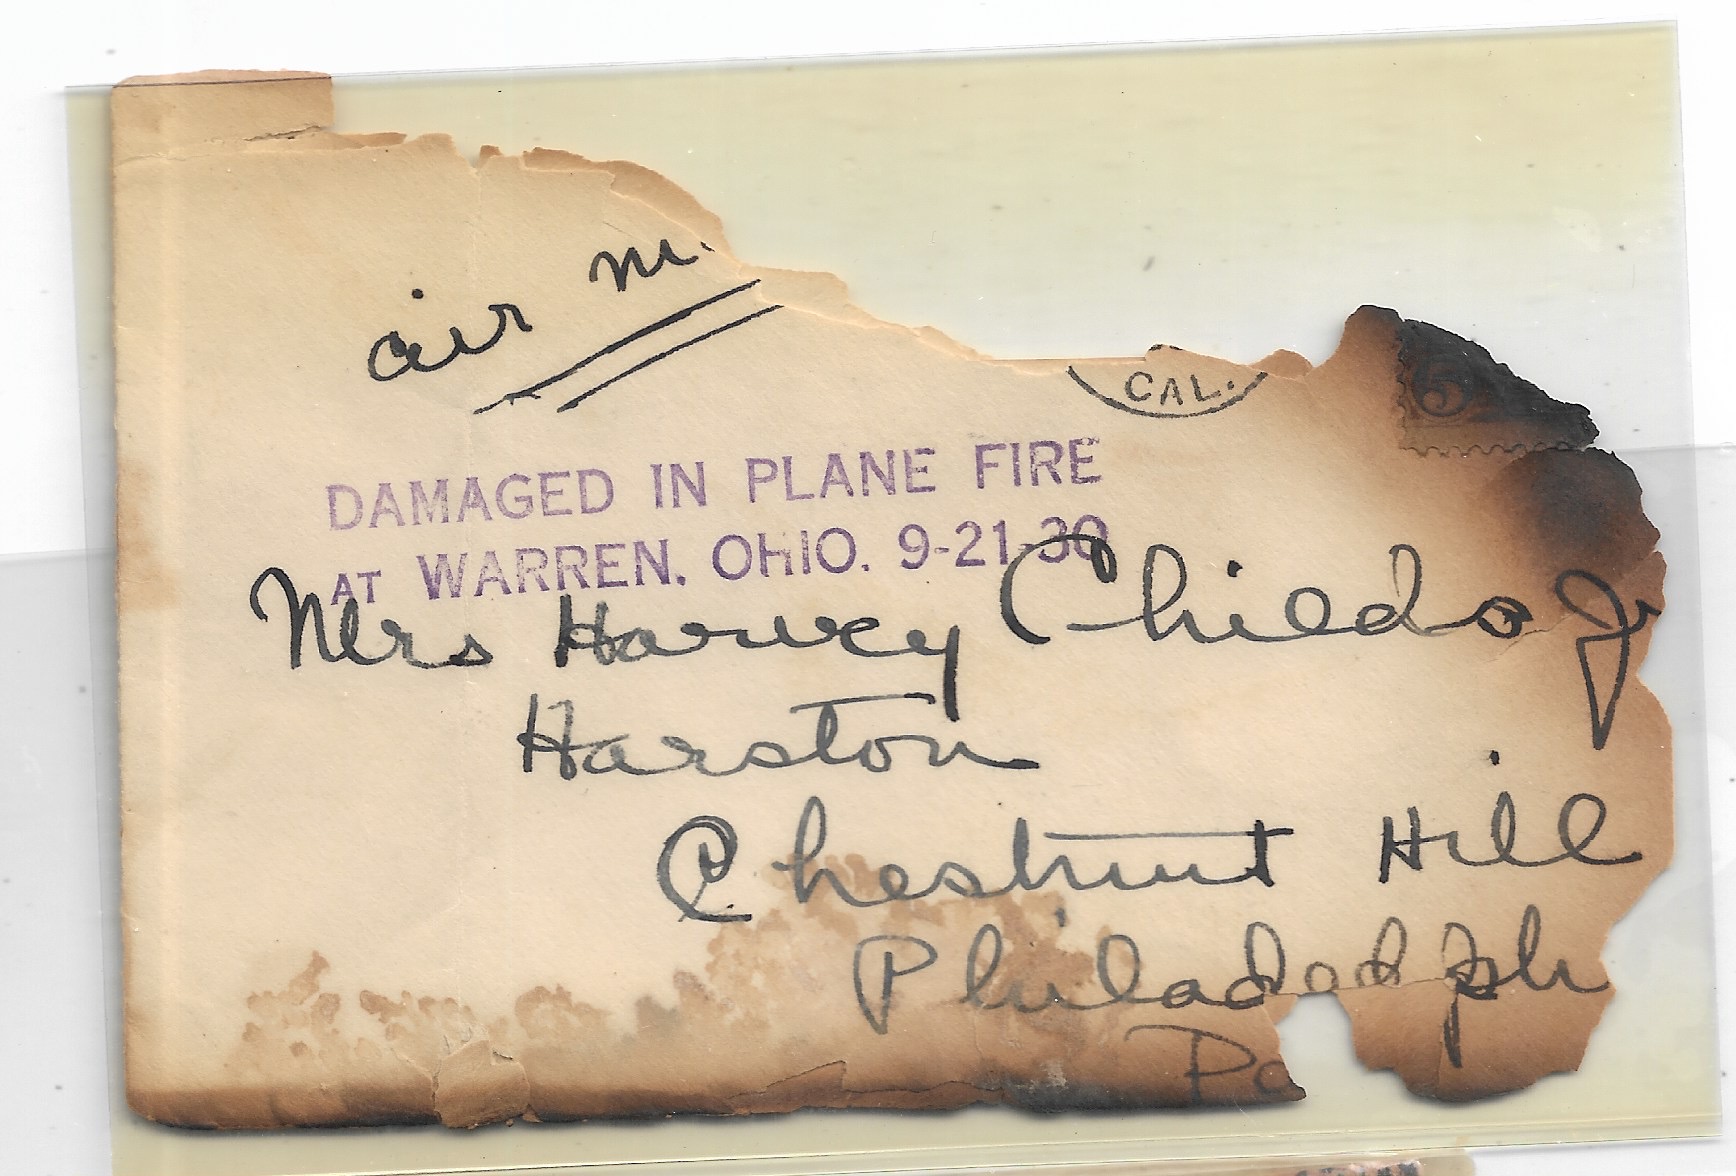 air m.
CAL.
5
DAMAGED IN PLANE FIRE
AT WARREN, OHIO. 9-21-30
Mrs Harvey Childs Jr
Harston
Chestnut Hill
Philadelph
Pa